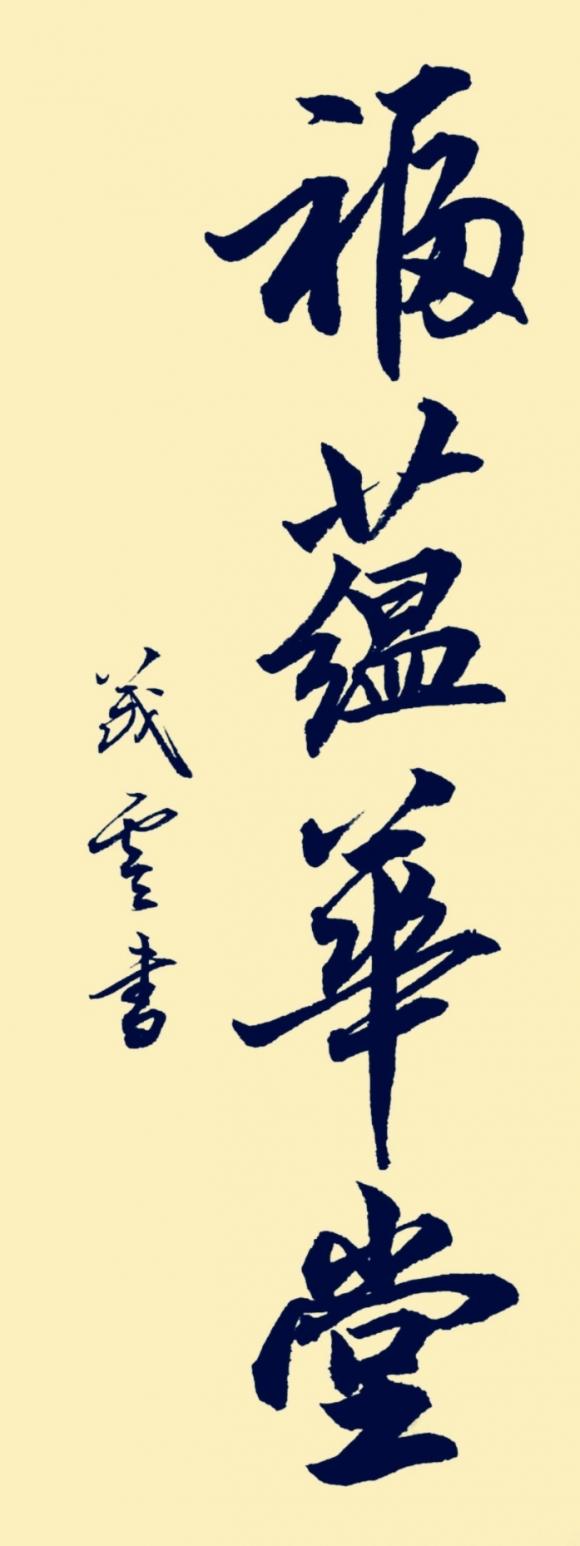 福蕴華堂
義雲書